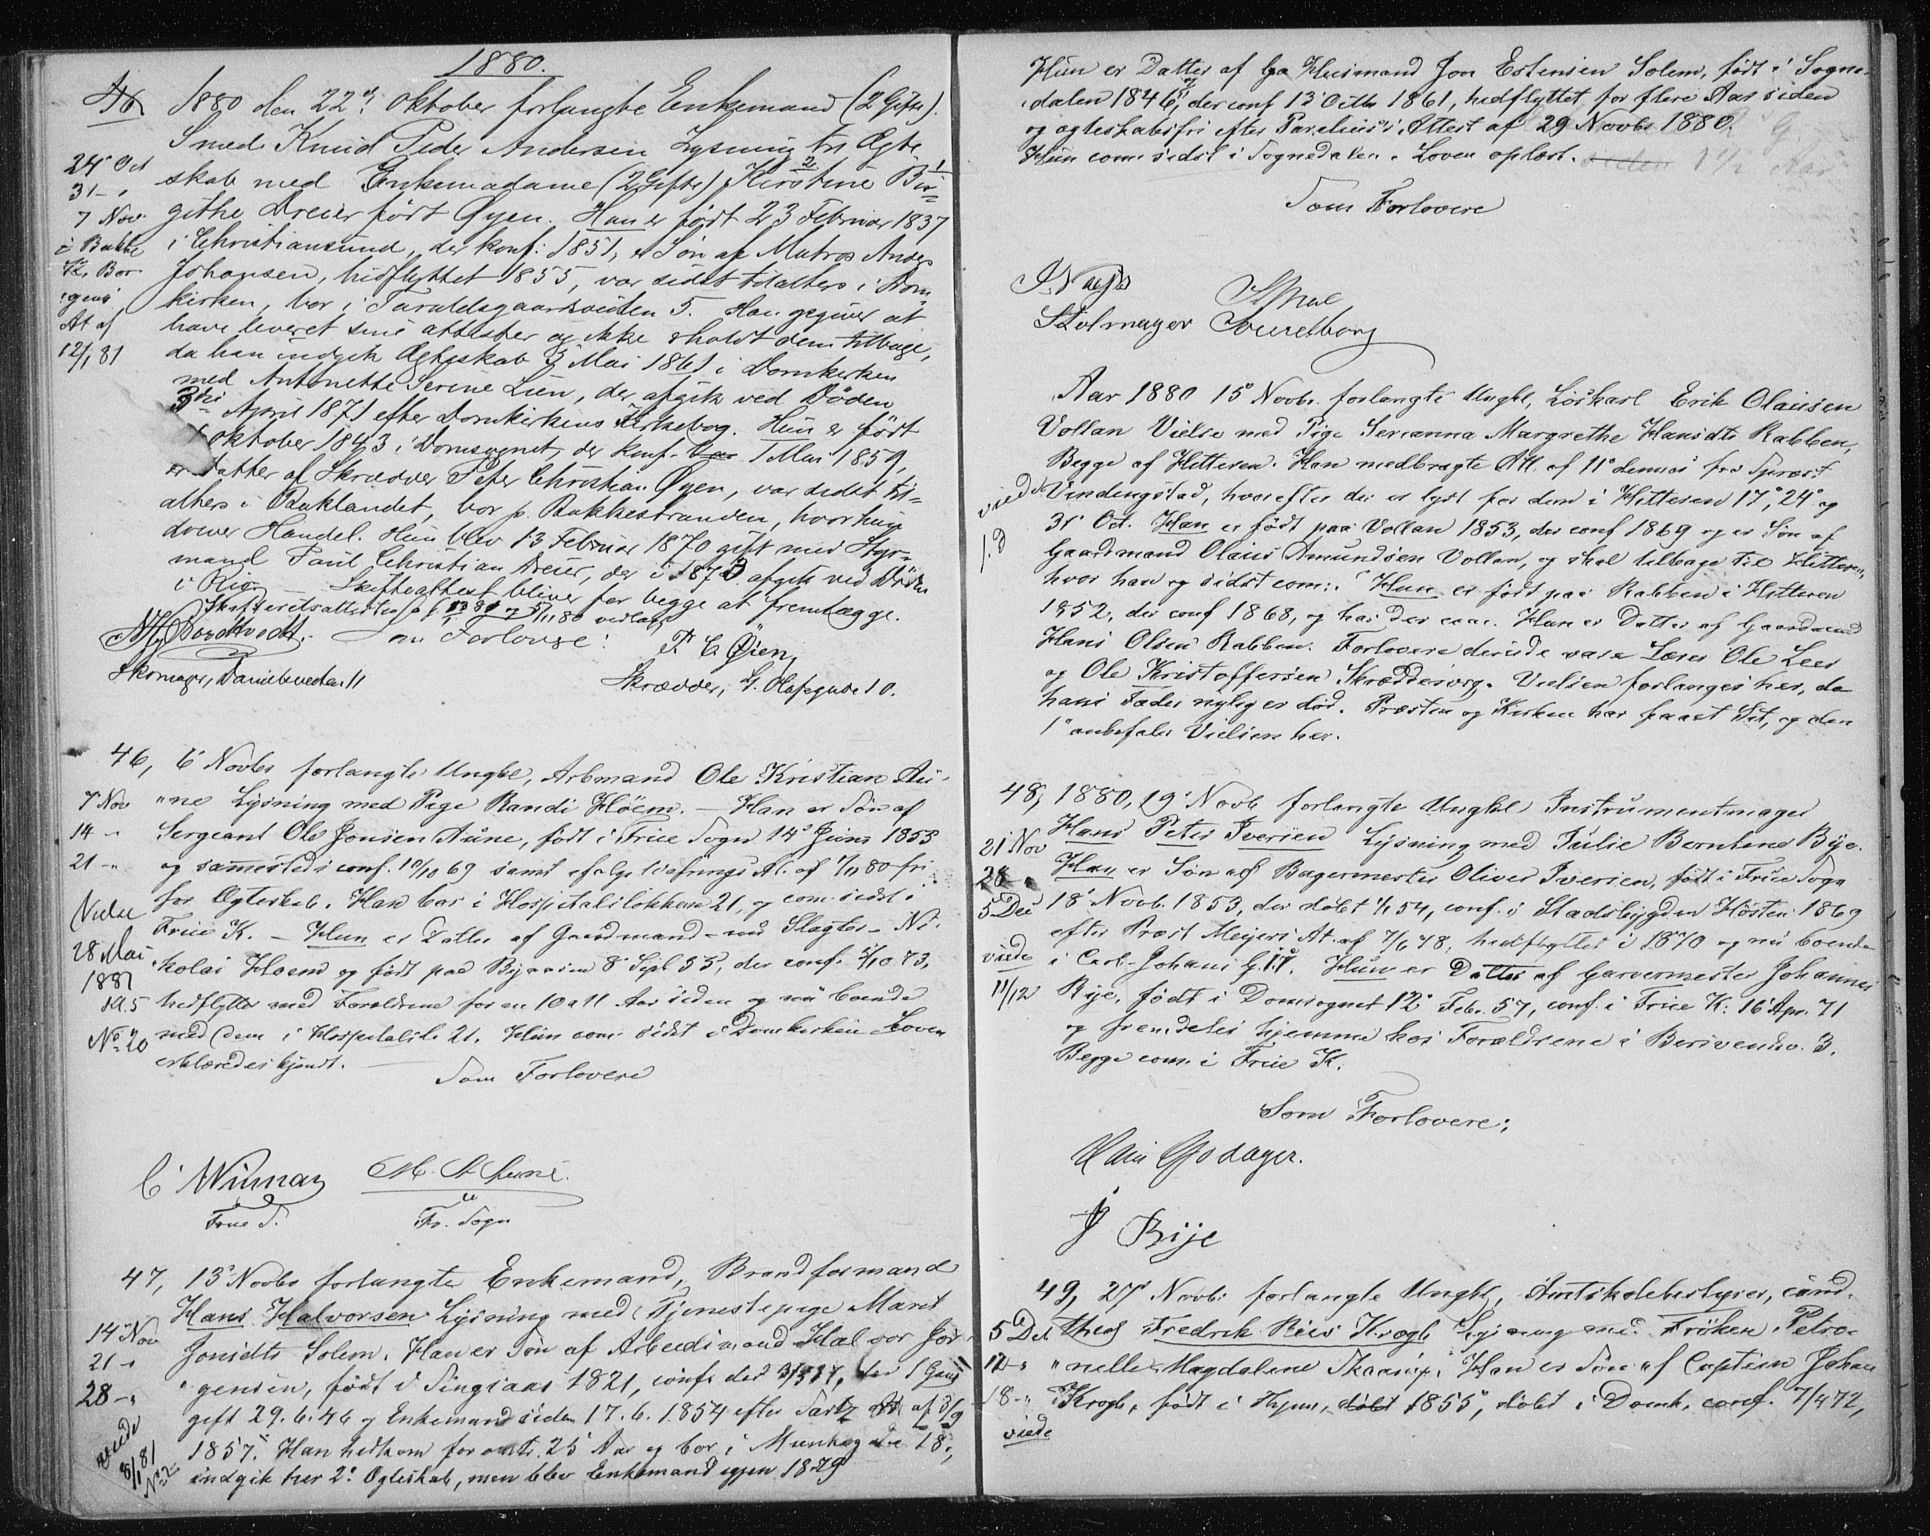 1880.
1880 den 22de Oktober forlangte Enkemand (2 Gifte).
Smed Knud Peder Andersen Lysning til Ægte
24' Oct
31 - "
7 Nov.
i Bakke
K. Bor
At af
12/1 81
skab med Enkemadame (2 Gifte) Kirstine Bir-
githe Dreier født Øyen. Han er født 23 Februar 1837
i Christiansund, der konf: 1851, er Søn af Matros Anders
Johansen, hidflyttet 1855, var sidst tilalters i Dom-
kirken, bor i Taraldsgaardsveiten 5. Han opgiver at
have leveret sine attester og ikke holdt dem tilbage,
da han indgik Ægteskab 3 Mai 1861 i Domkirken
med Antonette Serine Lien, der afgik ved Døden
April 1871 efter Domkirkens Kirkebog. Hun er født
Oktober 1843 i Domsognet, der konf. 1 Mai 1859,
er Datter af Skrædder Peter Christian Øyen, var sidst til-
alters i Baklandet, bor p. Bakkestranden, hvor hun
driver Handel. Hun blev 13 Februar 1870 gift med Styr-
mand Paul Christian Dreier, der i 1873 afgik ved Døden
i Rio. - Skifteattest bliver for begge at fremlægge.
Som Forlovere:
Skomager, Danielsveiten 11
P. C. Øien,
Skrædder, St. Olafsgade 10.
46, 6' Novbr forlangte Ungkl, Arbmand Ole Kristian Au-
7' Nov
14 - "
21 - "
"ne Lysning med Pige Randi Hõem. - Han er Søn af
Sergeant Ole Jonsen Aune, født i Frue Sogn 14' Juni 1853
og sammesteds conf. 10/10 69 samt ifølge Udskrivnings At. af 1/11 80 fri
for Ægteskab. Han bor i Hospitalsløkken 21, og com. sidst i
Vielse
28 Mai
1881
195
No 20
Frue K. - Hun er Datter af Gaardmand - nu Slagter - Ni-
kolai Hoem og født paa Byneset 8' Sept 55, der conf. 5/10 73,
hidflyttet med Forældrene for en 10 a 11 Aar siden og nu boende
med dem i Hospitalsl. 21. Hun com. sidst i Domkirken. Loven
erklæredes kjendt.
Som Forlovere
C Wiman
Frue S.
M. A. Aune
Fr. Sogn
47, 13' Novbr forlangte Enkemand, Brandformand
Hans Halvorsen Lysning med Tjenestepige Marit
14' Nov
21 - "
28 - "
viede
8/1 81
No 2
Jonsdtr Solem. Han er Søn af Arbeidsmand Halvor Jør-
gensen, født i Singsaas 1821, conf. der 37, der 1 Gang
gift 29.6.46 og Enkemand siden 17.6.1854 efter At. af 3/9
1857. Han hidkom for omtr. 25 Aar og bor i Munkegaden 18,
indgik her 2' Ægteskab, men blev Enkemand igjen 1879
Hun er Datter af Husmand Jon Estensen Solem, født i Sogne-
dalen 1846, der conf 13' Octbr 1861, hidflyttet for flere Aar siden
og ægteskabsfri efter Parelius's Attest af 29 Novbr 1880.
Hun com. sidst i Sognedalen. Loven oplæst.
Som Forlovere
Aar 1880 15' Novbr. forlangte Ungkl, Løskarl Erik Olausen
Vollan Vielse med Pige Serianna Margrethe Hansdtr Rabben,
Begge af Hitteren. Han medbragte Att. af 11' dennes fra Sprost
viede
Vindingstad, hvorefter der er lyst for dem i Hitteren 17', 24' og
31' Oct. Han er født paa Vollan 1853, der conf 1869 og er Søn af
Gaardmand Olaus Amundsen Vollan, og skal tilbage til Hitteren,
hvor han og sidst com:. Hun er født paa Rabben i Hitteren
1852, der conf 1868, og har der com. Hun er Datter af Gaardmand
Hans Olsen Rabben. Forlovere derude vare Lærer Ole Leer
og Ole Kristoffersen Skræddervig. Vielsen forlanges her, da
hans Fader nylig er død. Præsten og Kirken har faaet Sit, og den
1' anbefaler Vielsen her.
48, 1880, 19' Novb. forlangte Ungkl Instrumentmager
21' Nov
28 "
5 Dec
viede
11/12
Hans Peter Iversen Lysning med Julie Berntine Bye.
Han er Søn af Bagermester Oliver Iversen, født i Frue Sogn
18' Novb. 1853, der døbt 1/1 54, conf. i Stadsbygden Høsten 1869
efter Præst Meyers At. af 7/1 78, hidflyttet i 1870 og nu boende
i Carl Johans G. 17. Hun er Datter af Garvermester Johannes
Bye, født i Domsognet 12' Feb. 57, conf. i Frue K: 16' Apr. 71
og fremdeles hjemme hos Forældrene i Berivendv. 3.
Begge com. i Frue K.
Som Forlovere:
Hans Godager.
J Bije
49, 27' Novb. forlangte Ungkl, Amtskolebestyrer, cand.
5' Dec
12 - "
18 - "
viede
theol Fredrik Riis Krogh Lysning med Frøken Petro-
"nelle Magdalene Skaarup. Han er Søn af Captein Johan
Krogh, født i Hjem, 1855, døbt i Domk., conf. 7/4 72,